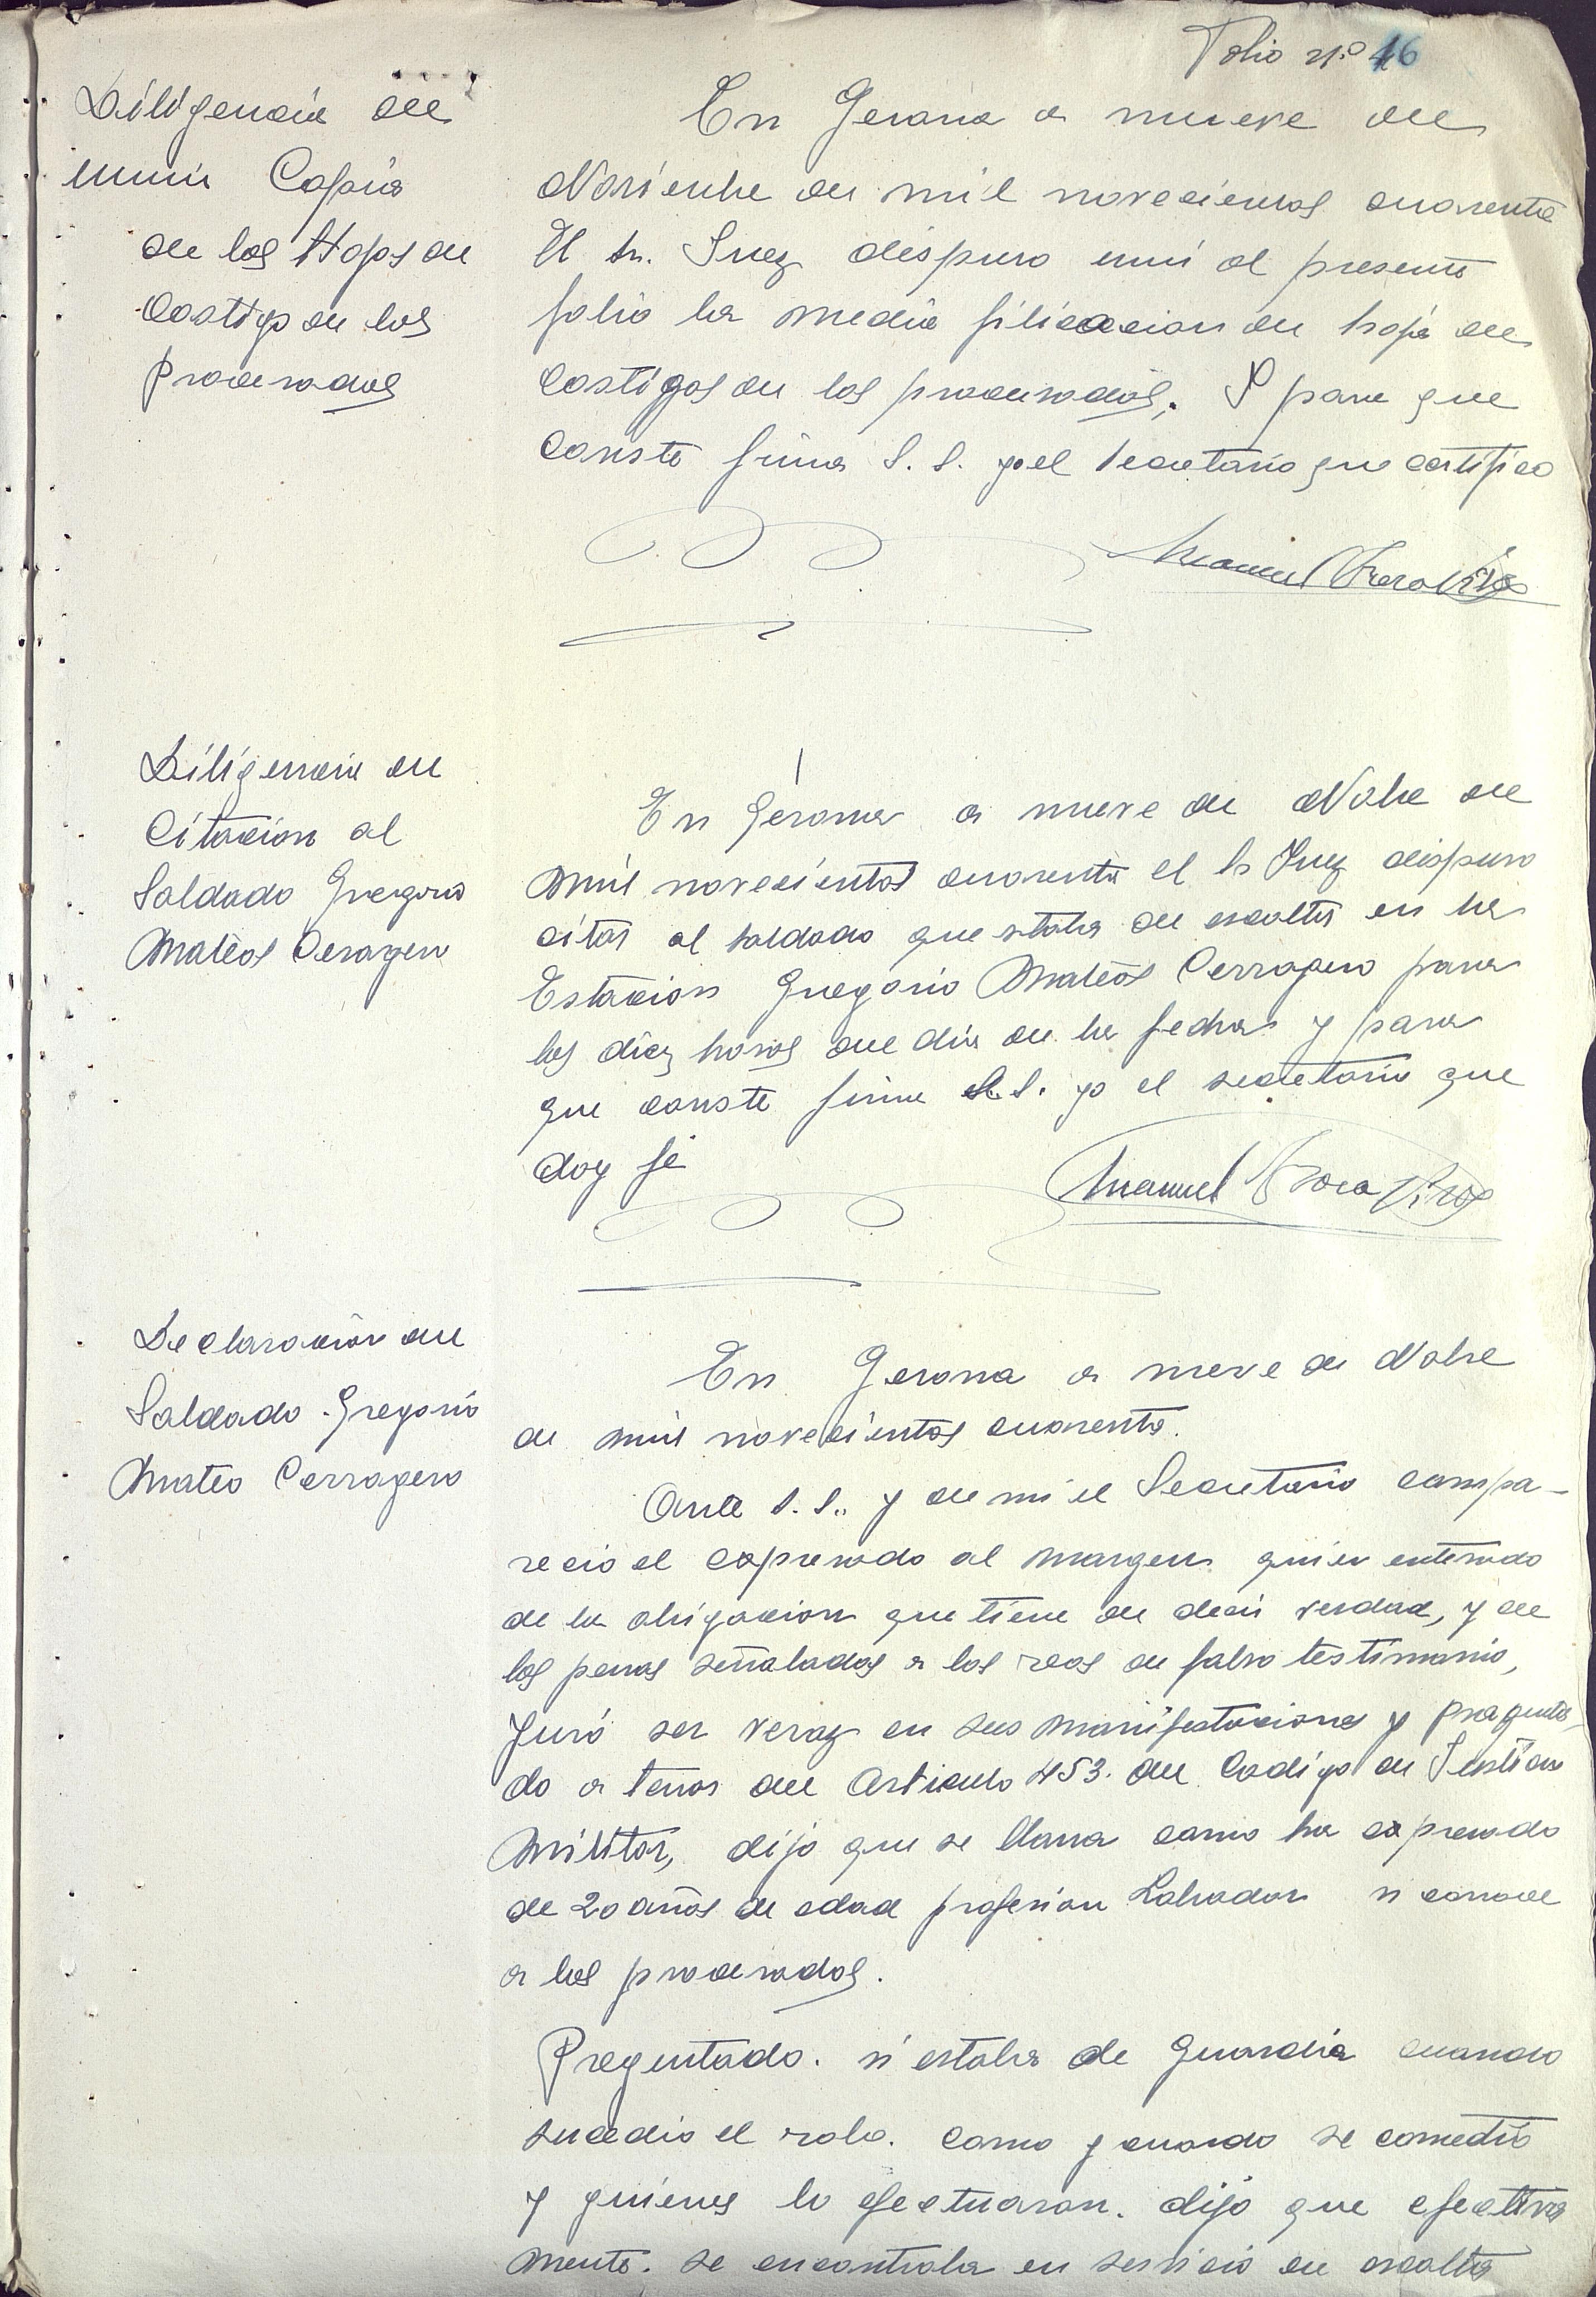 Folio nº 46
Diligencia de
unir Copia
de las Hojas de
Castigo de los
Procesados
En Gerona a nueve de
Noviembre de mil novecientos cuarenta
El Sr. Juez dispuso unir al presente
folio la media filiacion de hoja de
Castigos de los procesados, Y para que
Conste firma S. S. yo el Secretario que certifico
Manuel
Diligencia de
Citacion al
Soldado Gregorio
Mateos Ceragero
En Gerona a nueve de Nobre de
mil novecientos cuarenta el Sr Juez dispuso
citar al soldado que estaba de escolta en la
Estacion Gregorio Mateos Cerragero para
las diez horas del dia de la fecha y para
que conste firma S.S. yo el secretario que
doy fé
Manuel
Declaración del
Soldado Gregorio
Mateo Cerragero
En Gerona a nueve de Nobre
de mil novecientos cuarenta.
Ante S. S. y de mi el Secretario compa-
recio el expresado al margen quien enterado
de la obligacion que tiene de decir verdad, y de
las penas señaladas a los reos de falso testimonio,
Juró ser veraz en sus manifestaciones y pregunta-
do a tenor del Articulo 453. del Codigo de Justicia
Militar, dijo que se llama como ha expresado
de 20 años de edad profesion Labrador si conoce
a los procesados.
Preguntado. si estaba de Guardia cuando
sucedio el robo. como y cuando se cometió
y quienes lo efectuaron. dijo que efectiva
mente. se encontraba en servicio de escolta